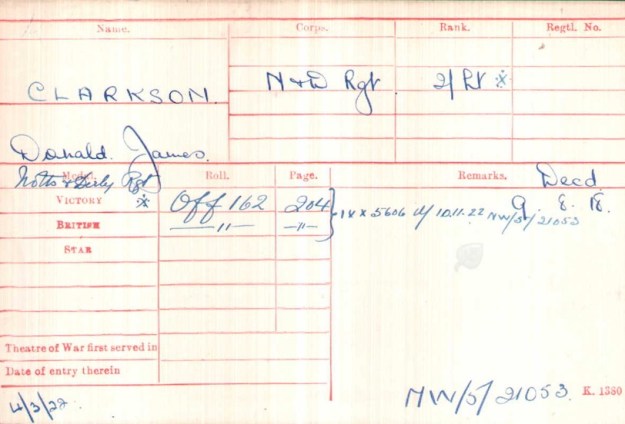 Name. Corps. Rank. Regtl. No.
CLARKSON. N & D Rgt 2/Lt ※
Donald James.
Notts & Derby Rgt ※
Medal. Roll. Page. Remarks. Decd
VICTORY Off 162 204 IVX 5606 d/ 10.11.22 NW/5/21053
BRITISH —〃— —〃—
STAR
Theatre of War first served in
Date of entry therein
4/3/22 NW/5/21053. K. 1380